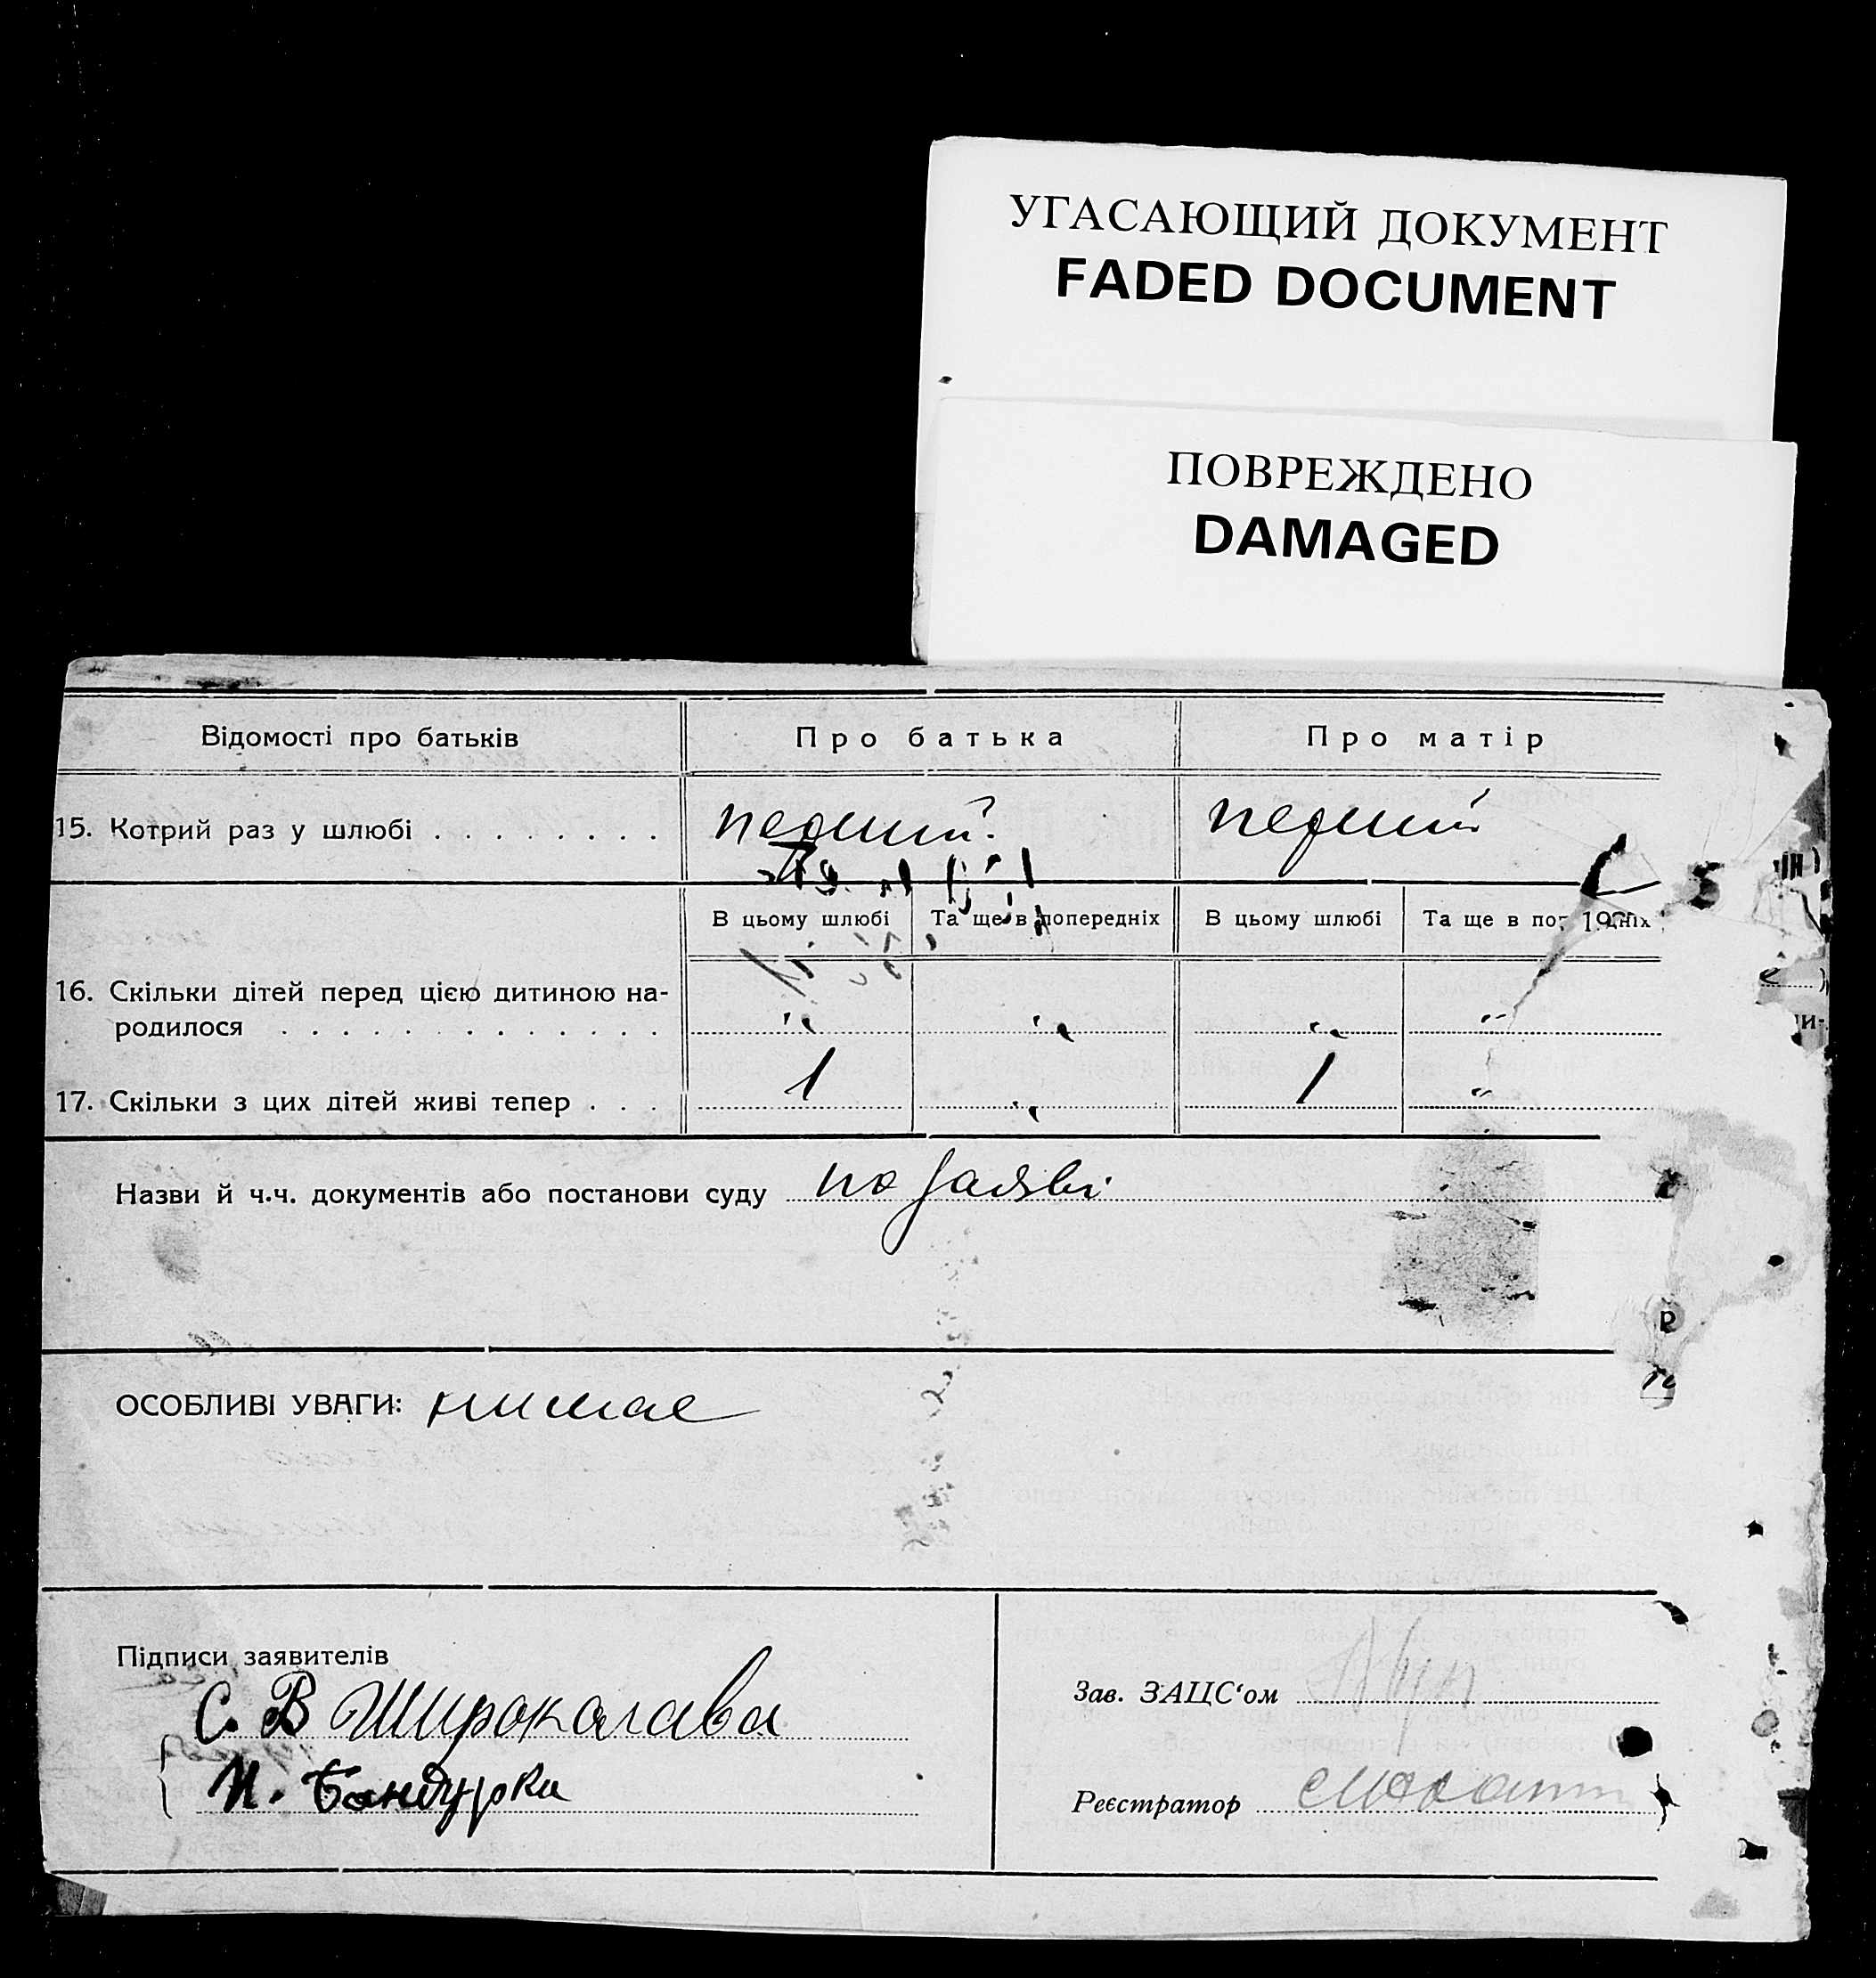 УГАСАЮЩИЙ ДОКУМЕНТ
FADED DOCUMENT
ПОВРЕЖДЕНО
DAMAGED
Відомості про батьків Про батька Про матір
15. Котрий раз у шлюбі . . . . . . . . перший перший
В цьому шлюбі Та ще в попередніх В цьому шлюбі Та ще в по
16. Скільки дітей перед цією дитиною на-
родилося . . . . . . . . . . . . . „ „ „ „
17. Скільки з цих дітей живі тепер . . . 1 „ 1 „
Назви й ч.ч. документів або постанови суду по заяві
ОСОБЛИВІ УВАГИ: нимае
Підписи заявителів
С. В Широкалава
Зав. ЗАЦС‘ом
И. Бандурка
Реєстратор